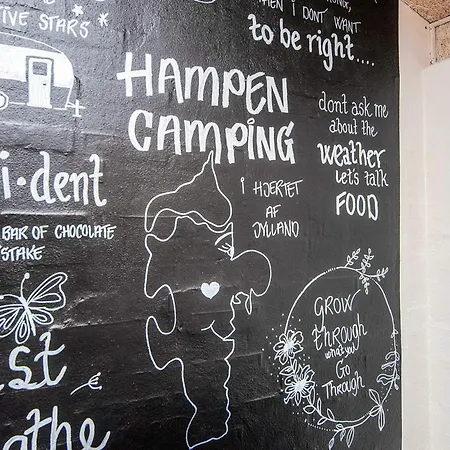 FIVE STARS
WHEN I DON'T WANT
to be right....
HAMPEN
CAMPING
dont ask me
about the
weather
let's talk
FOOD
i HJERTET
AF
JYLLAND
i·dent
BAR OF CHOCOLATE
GROW
through
what you
GO
Through